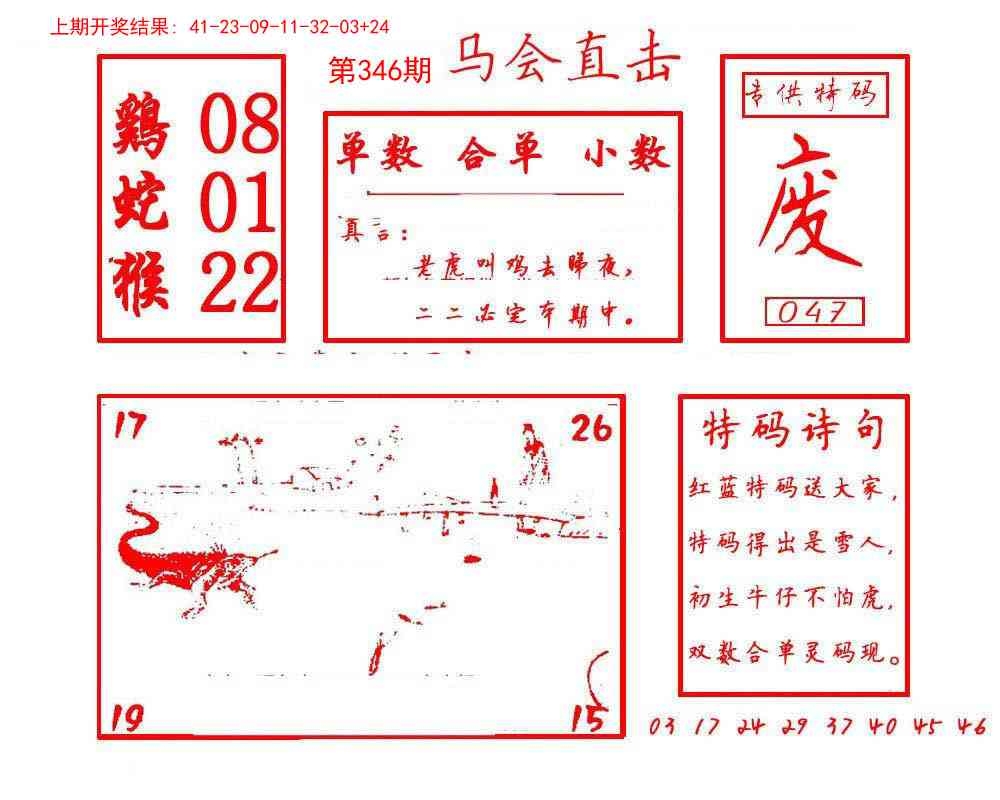 上期开奖结果: 41-23-09-11-32-03+24
第346期 马会直击
鷄 08
蛇 01
猴 22
单数 合单 小数
真言:
老虎叫鸡去睇夜,
二二必定本期中。
专供特码
废
047
17 26
19 15
特码诗句
红蓝特码送大家,
特码得出是雪人,
初生牛仔不怕虎,
双数合单灵码现。
03 17 24 29 37 40 45 46